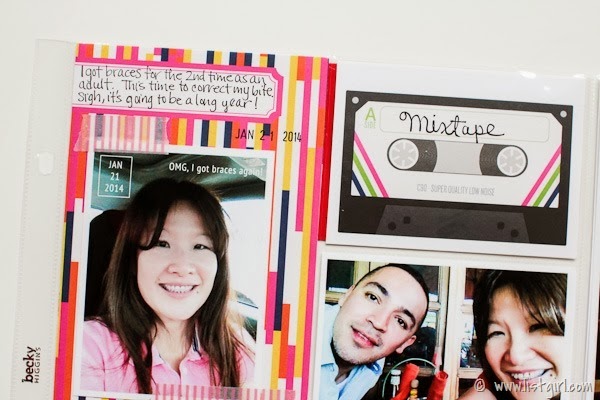 I got braces for the 2nd time as an
adult. This time to correct my bite,
srgh, it's going to be a long year!
JAN 21 2014
JAN
21
2014
OMG, I got braces again!
A
SIDE
Mixtape
C90 · SUPER QUALITY LOW NOISE
becky
HIGGINS
© www.listgirl.com